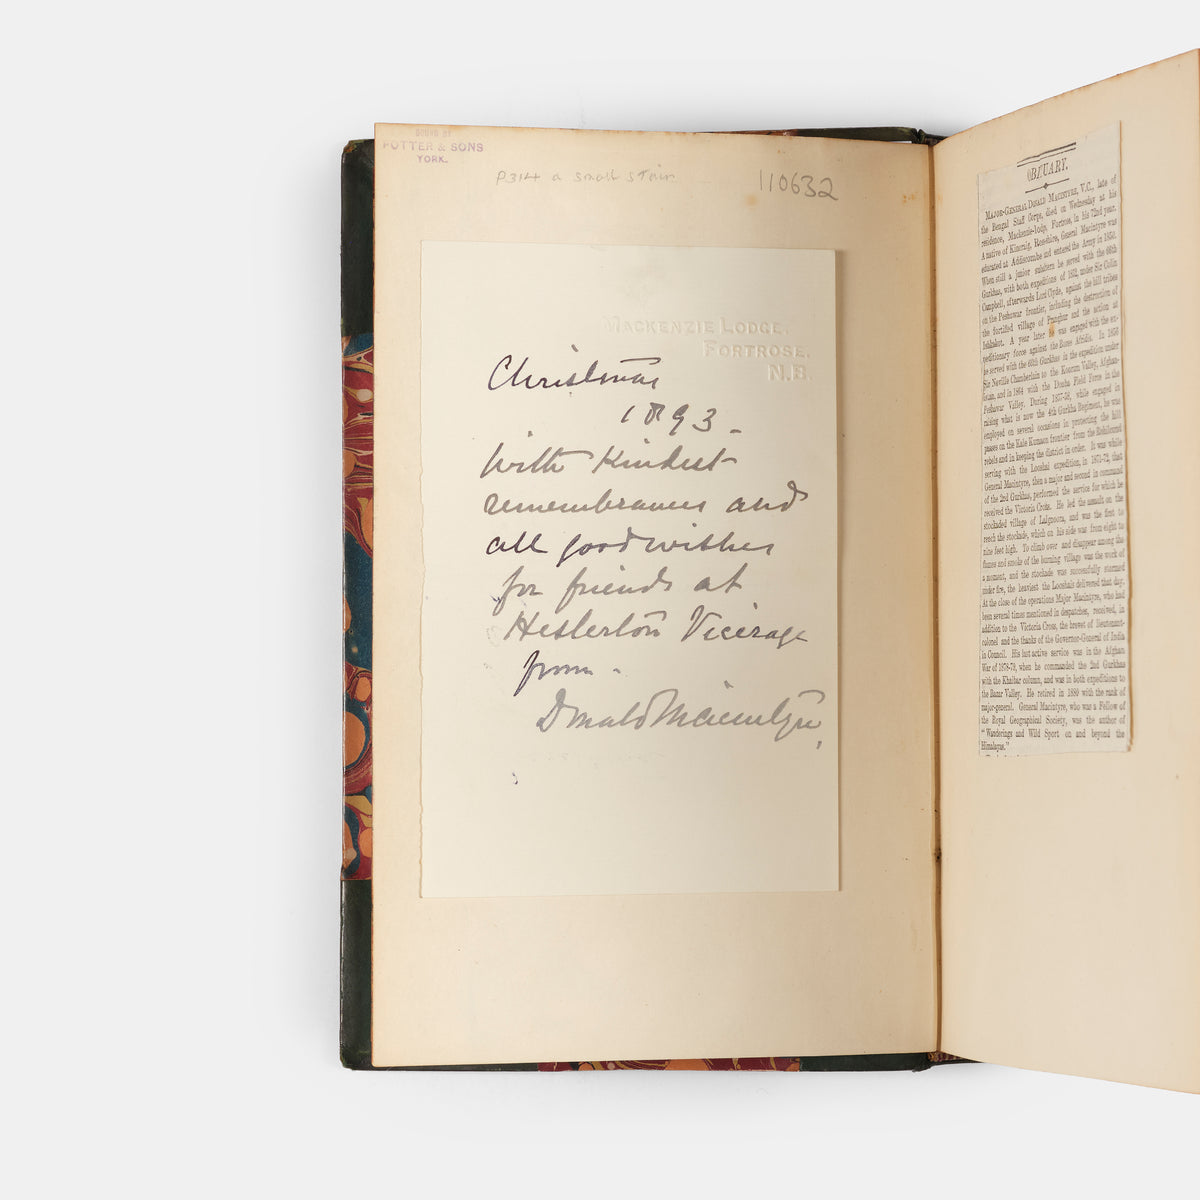 BOUND BY
POTTER & SONS
YORK.
P314 a small stain
110632
MACKENZIE LODGE.
FORTROSE.
N.B.
Christmas
1893 -
With Kindest
remembrances and
all good wishes
for friends at
Heslerton Vicarage
from -
Donald Macintyre,
OBITUARY.
MAJOR-GENERAL DONALD MACINTYRE, V.C., late of
the Bengal Staff Corps, died on Wednesday at his
residence, Mackenzie-lodge, Fortrose, in his 72nd year.
A native of Kincraig, Ross-shire, General Macintyre was
educated at Addiscombe and entered the Army in 1850.
When still a junior subaltern he served with the 66th
Gurkhas, with both expeditions of 1852, under Sir Colin
Campbell, afterwards Lord Clyde, against the hill tribes
on the Peshawur frontier, including the destruction of
the fortified village of Pranghur and the action at
Ishkakot. A year later he was engaged with the ex-
peditionary force against the Boree Afridis. In 1856
he served with the 66th Gurkhas in the expedition under
Sir Neville Chamberlain to the Kooram Valley, Afghan-
istan, and in 1864 with the Doaba Field Force in the
Peshawur Valley. During 1857-58, while engaged in
raising what is now the 4th Gurkha Regiment, he was
employed on several occasions in protecting the hill
passes on the Kale Kumaon frontier from the Rohilcund
rebels and in keeping the district in order. It was while
serving with the Looshai expedition, in 1871-72, that
General Macintyre, then a major and second in command
of the 2nd Gurkhas, performed the service for which he
received the Victoria Cross. He led the assault on the
stockaded village of Lalgnoora, and was the first to
reach the stockade, which on his side was from eight to
nine feet high. To climb over and disappear among the
flames and smoke of the burning village was the work of
a moment, and the stockade was successfully stormed
under fire, the heaviest the Looshais delivered that day.
At the close of the operations Major Macintyre, who had
been several times mentioned in despatches, received, in
addition to the Victoria Cross, the brevet of lieutenant-
colonel and the thanks of the Governor-General of India
in Council. His last active service was in the Afghan
War of 1878-79, when he commanded the 2nd Gurkhas
with the Khaibar column, and was in both expeditions to
the Bazar Valley. He retired in 1880 with the rank of
major-general. General Macintyre, who was a Fellow of
the Royal Geographical Society, was the author of
"Wanderings and Wild Sport on and beyond the
Himalayas."